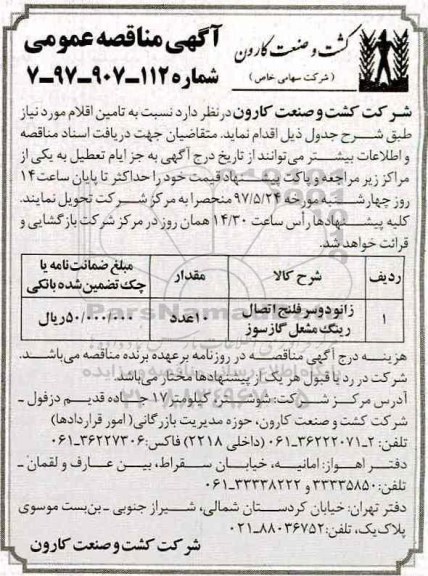 کشت و صنعت کارون
(شرکت سهامی خاص)
آگهی مناقصه عمومی
شماره ۱۱۲-۹۰۷-۹۷-۷
شرکت کشت و صنعت کارون در نظر دارد نسبت به تامین اقلام مورد نیاز
طبق شرح جدول ذیل اقدام نماید. متقاضیان جهت دریافت اسناد مناقصه
و اطلاعات بیشتر می‌توانند از تاریخ درج آگهی به جز ایام تعطیل به یکی از
مراکز زیر مراجعه و پاکت پیشنهاد قیمت خود را حداکثر تا پایان ساعت ۱۴
روز چهارشنبه مورخه ۹۷/۵/۲۴ منحصرا به مرکز شرکت تحویل نمایند.
کلیه پیشنهادها رأس ساعت ۱۴/۳۰ همان روز در مرکز شرکت بازگشایی و
قرائت خواهد شد.
ردیف شرح کالا مقدار مبلغ ضمانت‌نامه یا
چک تضمین شده بانکی
۱ زانو دوسر فلنج اتصال
رینگ مشعل گازسوز ۱۰عدد ۵۰/۰۰۰/۰۰۰ریال
هزینه درج آگهی مناقصه در روزنامه برعهده برنده مناقصه می‌باشد.
شرکت در رد یا قبول هر یک از پیشنهادها مختار می‌باشد.
آدرس مرکز شرکت: شوشتر، کیلومتر ۱۷ جاده قدیم دزفول -
شرکت کشت و صنعت کارون، حوزه مدیریت بازرگانی( امور قراردادها)
تلفن: ۲-۳۶۲۲۲۰۷۱-۰۶۱ (داخلی ۲۲۱۸) فاکس: ۳۶۲۲۷۳۰۶-۰۶۱
دفتر اهواز: امانیه، خیابان سقراط، بین عارف و لقمان -
تلفن: ۳۳۳۳۵۸۵۰ و ۳۳۳۳۸۲۲۲-۰۶۱
دفتر تهران: خیابان کردستان شمالی، شیراز جنوبی - بن‌بست موسوی
پلاک یک، تلفن: ۸۸۰۳۶۷۵۲-۰۲۱
شرکت کشت و صنعت کارون